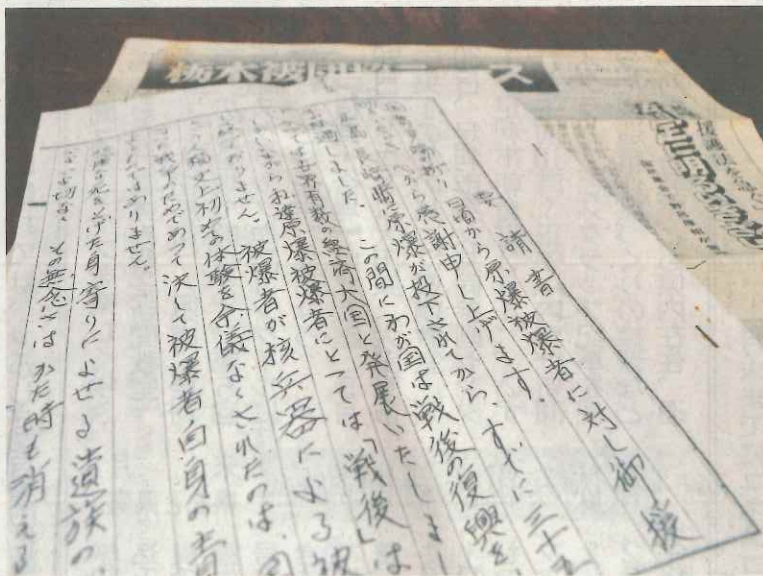 栃木被団協ニュース
援護法を
要請書
日頃から原爆被爆者に対し御援
から感謝申し上げます。
広島・長崎に原爆が投下されてから、すでに三十五
過しました。この間にわが国は戦後の復興を
では世界有数の経済大国と発展いたしまし
しかしながら私達原爆被爆者にとっては「戦後」は
っておりません。被爆者が核兵器による被
いう歴史上初めての体験を余儀なくされたのは、国
った戦争のためであって決して被爆者自身の責
ではありません。
の死をとげた身寄りによせる遺族の、
その無念さはかた時も消える